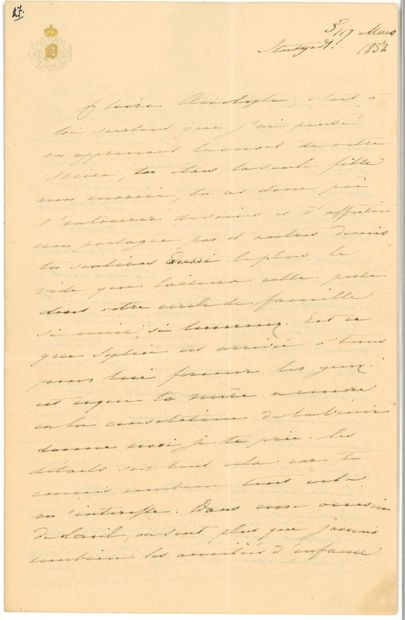 27.
5/17 Mars
Stuttgart. 1852
Chère c'est à
toi surtout que j'ai pensé
en apprenant la mort de votre
tu étais la seule fille
non mariée, tu as donc pu
l'entourer de soins et d'affection
non partagée par d'autres devoirs
tu sentiras aussi le plus le
vide que laissera cette perte
dans votre cercle de famille
si unie, si heureux. Est ce
que Sophie est arrivée à temps
pour lui fermer les yeux
est ce que ta mère a encore
eu la consolation de la bénir
donne moi je te prie les
détails sur tout cela car tu
connais combien tout cela
m'intéresse. Dans une occasion
de deuil, on sent plus que jamais
combien les amitiés d'enfance